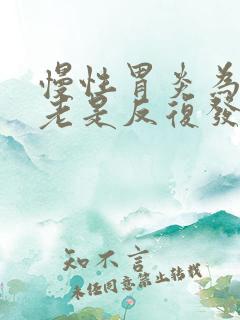 慢性胃炎為
老是反復發
知不言
未经同意禁止转载